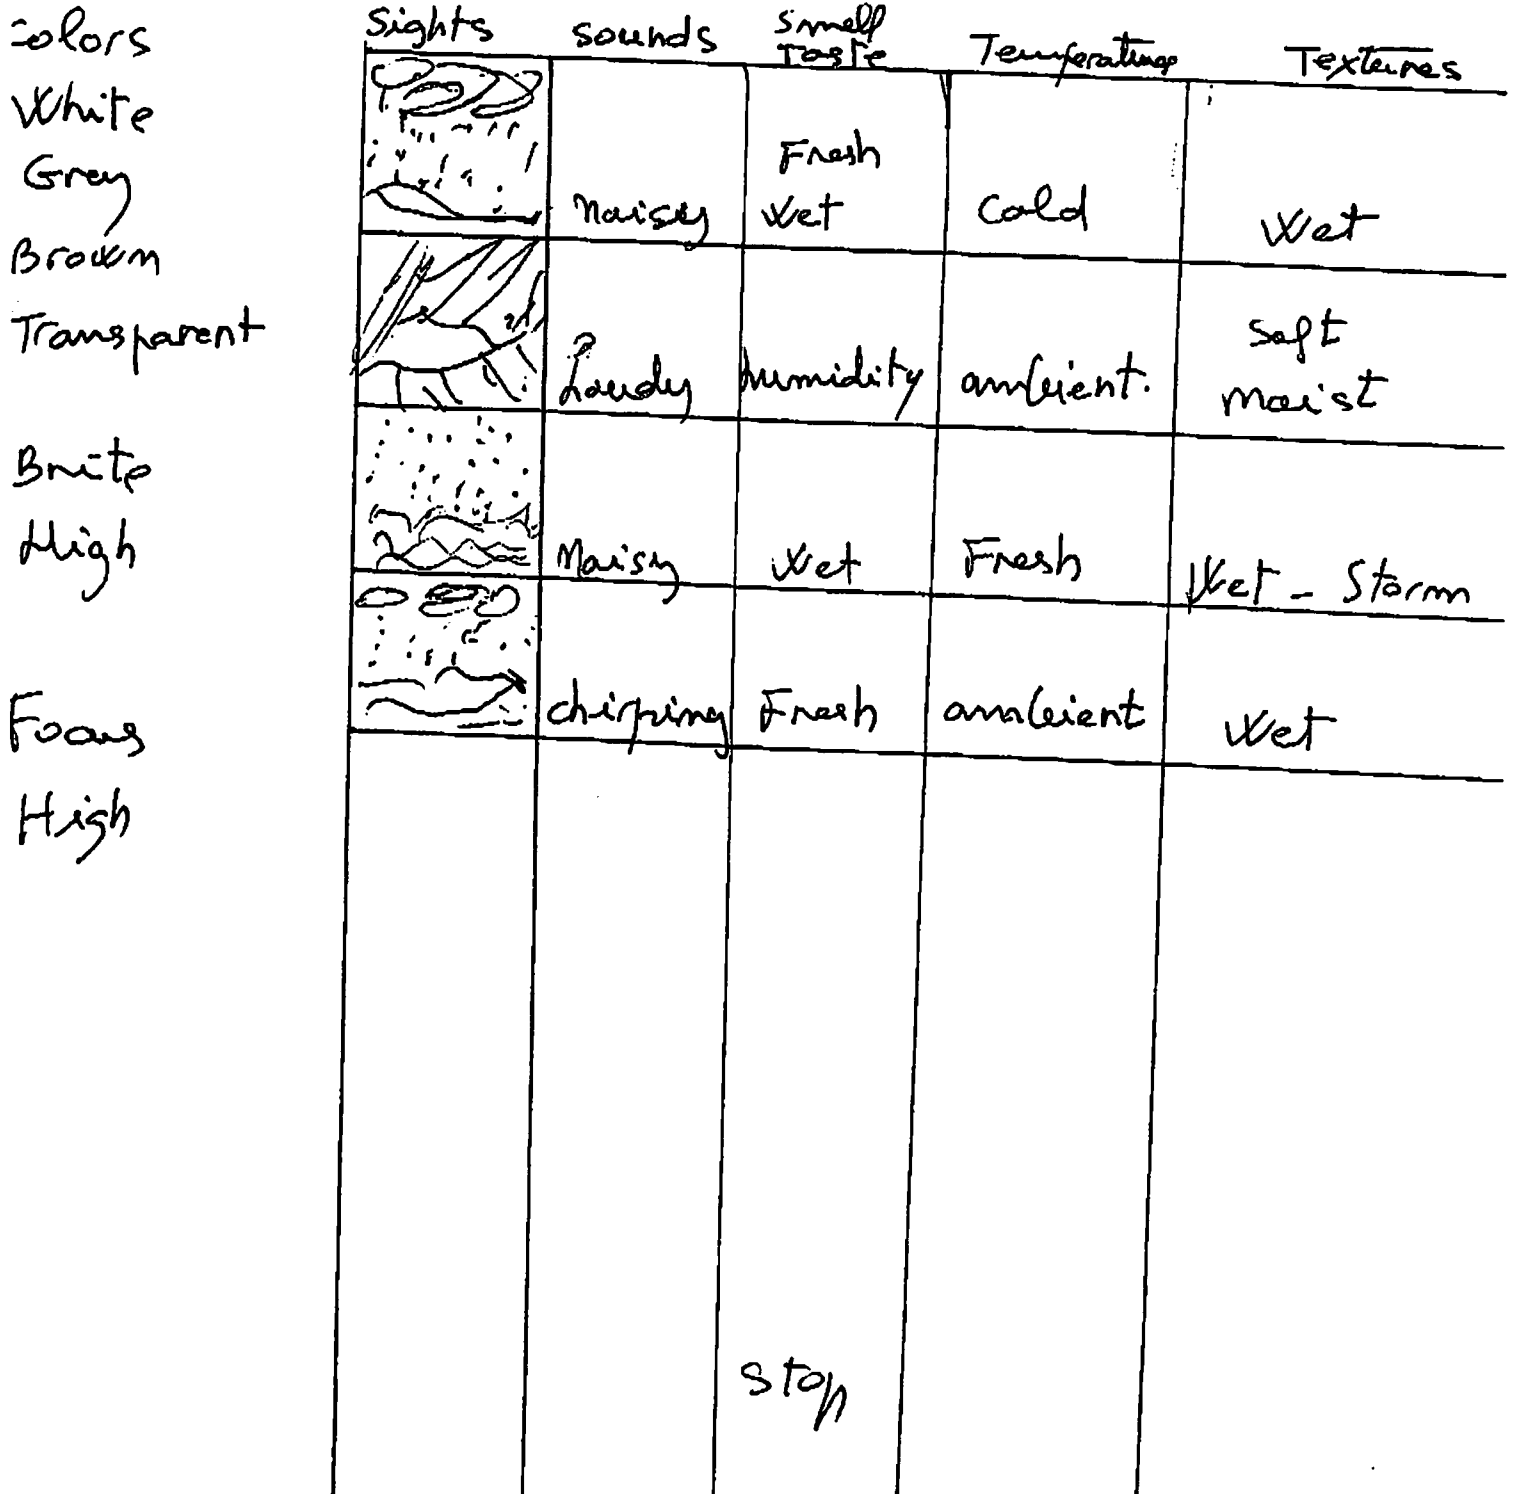 Colors
White
Grey
Brown
Transparent
Brite
High
Focus
High
Sights sounds Smell Taste Temperatures Textures
Noisy Fresh Wet Cold Wet
Loudy humidity ambient. Soft Moist
Noisy Wet Fresh Wet - Storm
chirping Fresh ambient Wet
Stop